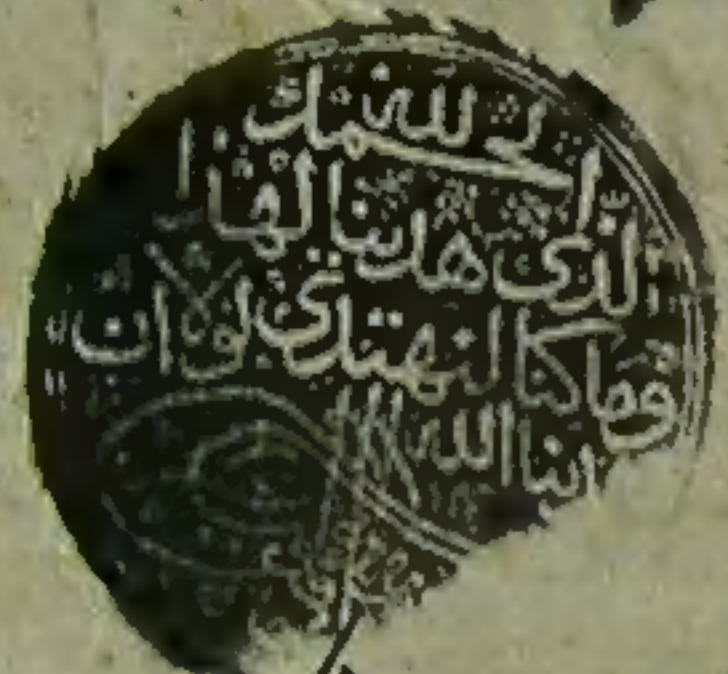 الحمد لله
الذي هدينا لهذا
وما كنا لنهتدي لولا ان
الله